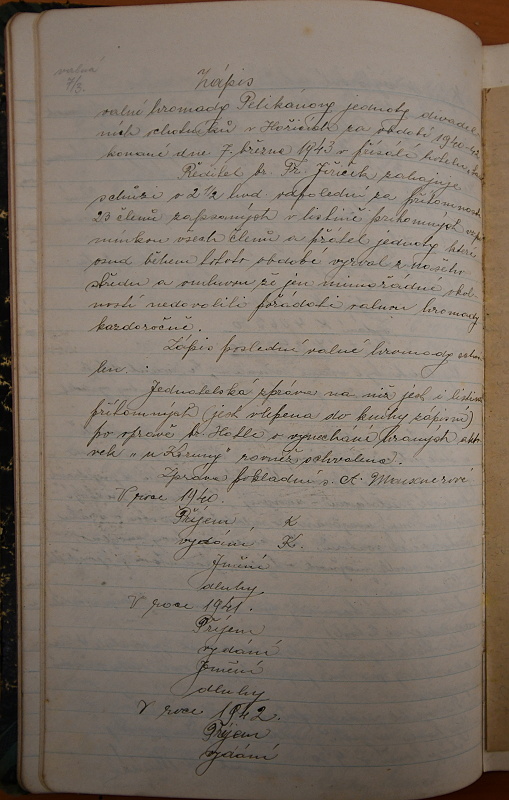 valná
7/3.
Zápis
valné hromady Pelikánovy jednoty divadel-
ních ochotníků v Hořicích za období 1940-42
konané dne 7. března 1943 v
Ředitel br. Fr. Jiříček zahajuje
schůzi v 2 1/2 hod odpolední za přítomnosti
23 členů zapsaných v listině přítomných vzpo-
mínkou všech členů a přátel jednoty které
osud během tohoto období vyrval z našeho
středu a omluvou že jen mimořádné okol-
nosti nedovolili pořádati valnou hromadu
každoročně.
Zápis poslední valné hromady schvá-
len.
Jednatelská zpráva na níž jest i listina
přítomných (jest vlepena do knihy zápisní)
po opravě br. Hátle o vynechání hraných akto-
vek „u Karuny" rovněž schválena.
Zpráva pokladní s. A.
V roce 1940.
Příjem K
vydání K.
Jmění
dluhy
V roce 1941.
Příjem
vydání
Jmění
dluhy
V roce 1942.
Příjem
vydání